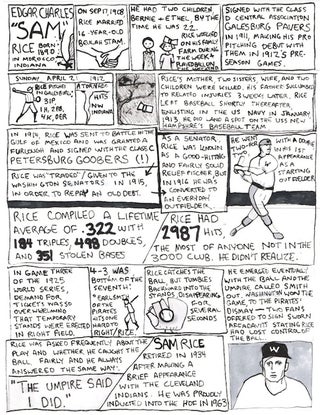 EDGAR CHARLES
"SAM"
RICE BORN
1890
IN MOROCCO
INDIANA
ON SEPT 17, 1908
RICE MARRIED
16-YEAR-OLD
BEULAH STAM.
HE HAD TWO CHILDREN,
BERNIE + ETHEL, BY THE
TIME HE WAS 22.
RICE WORKED
ON HIS FAMILY
FARM DURING
THE WEEK &
PLAYED BALL ON
SIGNED WITH THE CLASS
D CENTRAL ASSOCIATION
GALESBURG PAVERS
IN 1911, MAKING HIS PRO
PITCHING DEBUT WITH
THEM IN 1912'S PRE-
SEASON GAMES.
SUNDAY APRIL 21 1912
RICE PITCHES
IN GALESBURG,
3IP
1H, 2BB,
4K, 0ER
A TORNADO
HITS
NW
INDIANA
RICE'S MOTHER, TWO SISTERS, WIFE, AND TWO
CHILDREN WERE KILLED. HIS FATHER SUCCUMBED
TO RELATED INJURIES 3 WEEKS LATER. RICE
LEFT BASEBALL SHORTLY THEREAFTER,
ENLISTING IN THE US NAVY IN JANUARY
1913. HE DID LAND A SPOT ON THE USS NEW
HAMPSHIRE'S BASEBALL TEAM.
IN 1914, RICE WAS SENT TO BATTLE IN THE
GULF OF MEXICO AND WAS GRANTED A
FURLOUGH AND SIGNED WITH THE CLASS C
PETERSBURG GOOBERS (!)
RICE WAS "TRADED"/GIVEN TO THE
WASHINGTON SENATORS IN 1915,
IN ORDER TO REPAY AN OLD DEBT.
AS A SENATOR,
RICE WAS KNOWN
AS A GOOD-HITTING
AND FAIRLY SOLID
RELIEF PITCHER.
BUT IN 1916 HE WAS
CONVERTED TO
AN EVERYDAY
OUTFIELDER.
HE WENT
TWO-FOR-
WITH A DOUBLE
IN HIS 1ST
APPEARANCE
AS A
STARTING
OUTFIELDER
RICE COMPILED A LIFETIME
AVERAGE OF .322 WITH
184 TRIPLES, 498 DOUBLES,
AND 351 STOLEN BASES
RICE HAD
2987 HITS,
THE MOST OF ANYONE NOT IN THE
3000 CLUB. HE DIDN'T REALIZE.
IN GAME THREE
OF THE 1925
WORLD SERIES,
DEMAND FOR
TICKETS WAS SO
OVERWHELMING
THAT TEMPORARY
STANDS WERE ERECTED
IN RIGHT FIELD.
4-3 WAS
BOTTOM OF THE
SEVENTH
EARL SMITH
OF THE
PIRATES
HITS ONE
HARD TO
RIGHT/RICE.
RICE CATCHES THE
BALL, BUT TUMBLES
BACKWARD INTO THE
STANDS, DISAPPEARING
FOR
SEVERAL
SECONDS.
HE EMERGED EVENTUALLY
WITH THE BALL AND THE
UMPIRE CALLED SMITH
OUT. WASHINGTON WON THE
GAME, TO THE PIRATES'
DISMAY — TWO FANS
OFFERED TO SIGN SWORN
AFFADAVITS STATING RICE
HAD LOST CONTROL OF
THE BALL.
RICE WAS ASKED FREQUENTLY ABOUT THE
PLAY AND WHETHER HE CAUGHT THE
BALL FAIRLY AND HE ALWAYS
ANSWERED THE SAME WAY:
"THE UMPIRE SAID
I DID."
SAM RICE
RETIRED IN 1934
AFTER MAKING A
BRIEF APPEARANCE
WITH THE CLEVELAND
INDIANS. HE WAS PROUDLY
INDUCTED INTO THE HOF IN 1963
W